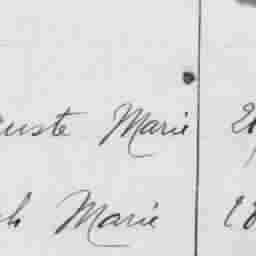 uste Marie 2
h Marie 18